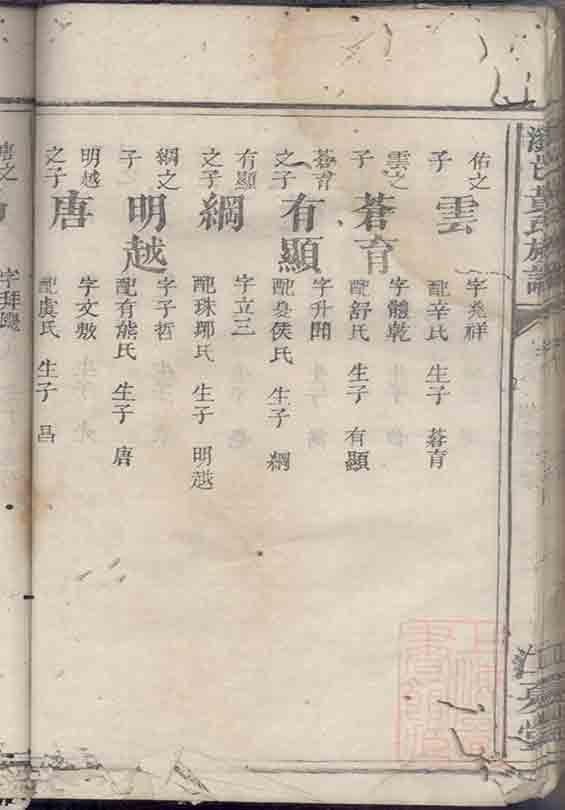 佑之
子
雲
字堯祥
配辛氏 生子 蒼育
雲之
子
蒼育
字體乾
配舒氏 生子 有顯
蒼育
之子
有顯
字升聞
配夏侯氏 生子 綱
有顯
之子
綱
字立三
配珠琊氏 生子 明越
綱之
子
明越
字子哲
配有熊氏 生子 唐
明越
之子
唐
字文敷
配虞氏 生子 昌
唐之
黃氏族譜
江夏堂